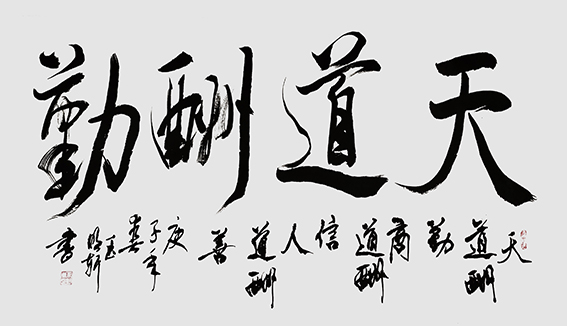 天道酬勤
天道酬勤
商道酬信
人道酬善
庚子年
书